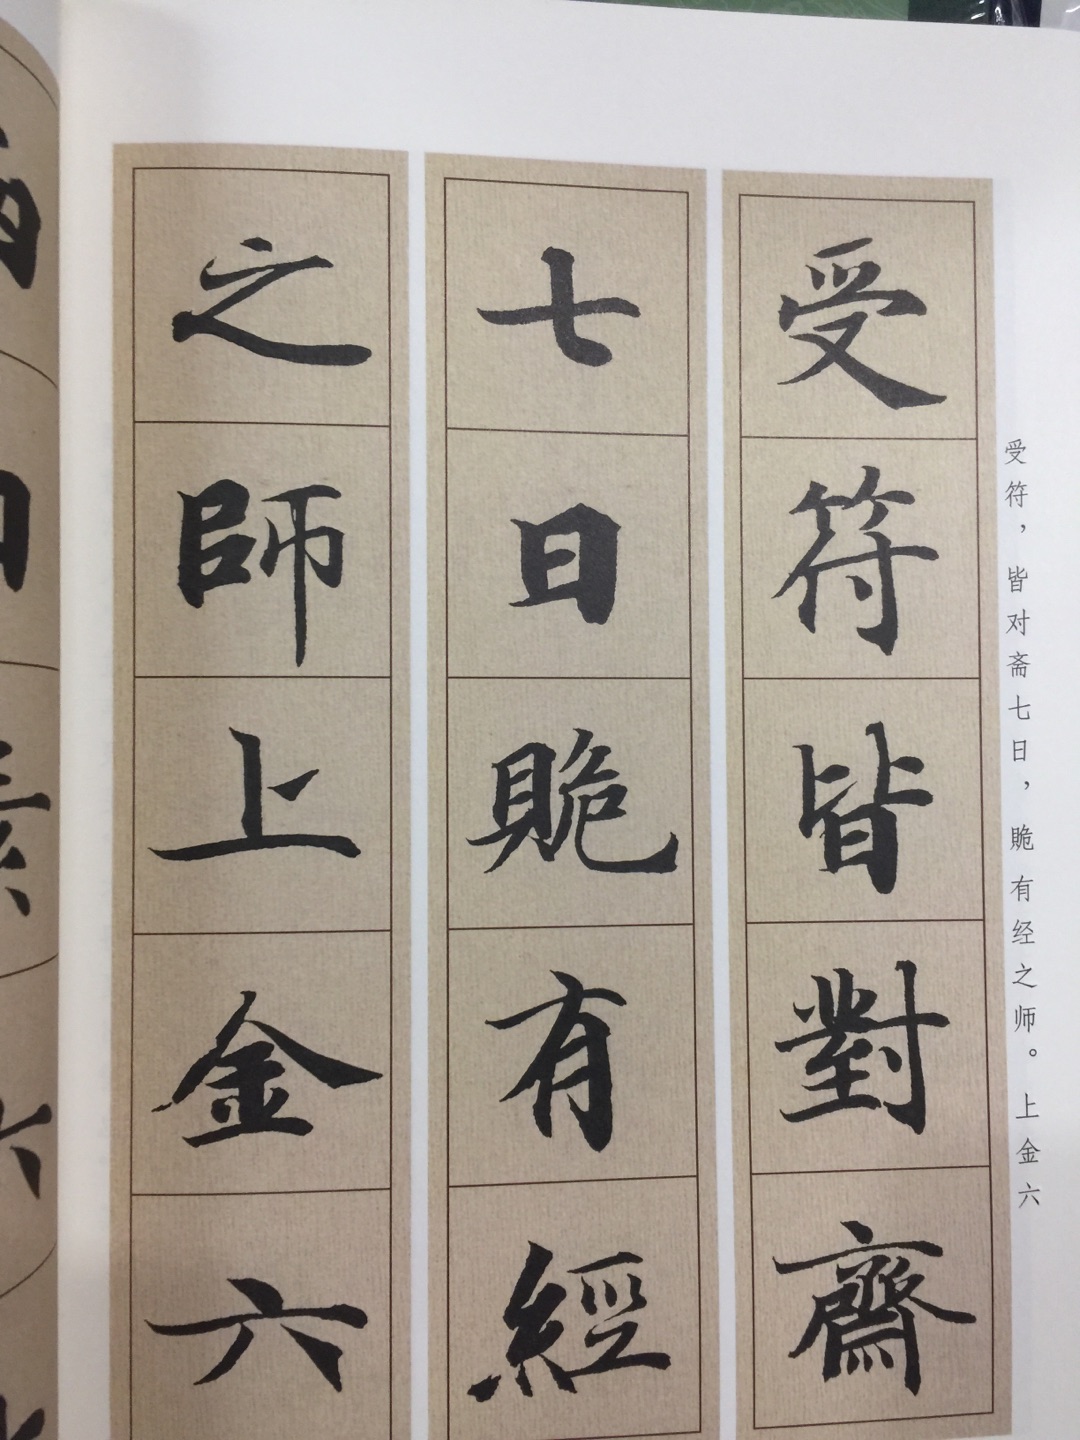 受符皆對齋
七日賘有經
之師上金六
受符，皆对斋七日，賘有经之师。上金六